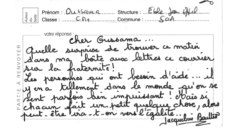 Prénom : Oussama Structure : Ecole Jean Effel
Classe : CM1 Commune : SOA
votre réponse :
Cher Oussama...
Quelle surprise de trouver ce matin
dans ma boîte aux lettres ce courrier
sur la fraternité !
Les personnes qui ont besoin d'aide... il
y en a tellement dans le monde qu'on se
sent parfois bien impuissant ! Mais si
chacun fait un petit quelque chose, alors
peut être ira-t-on vers l'égalité...
Jacqueline